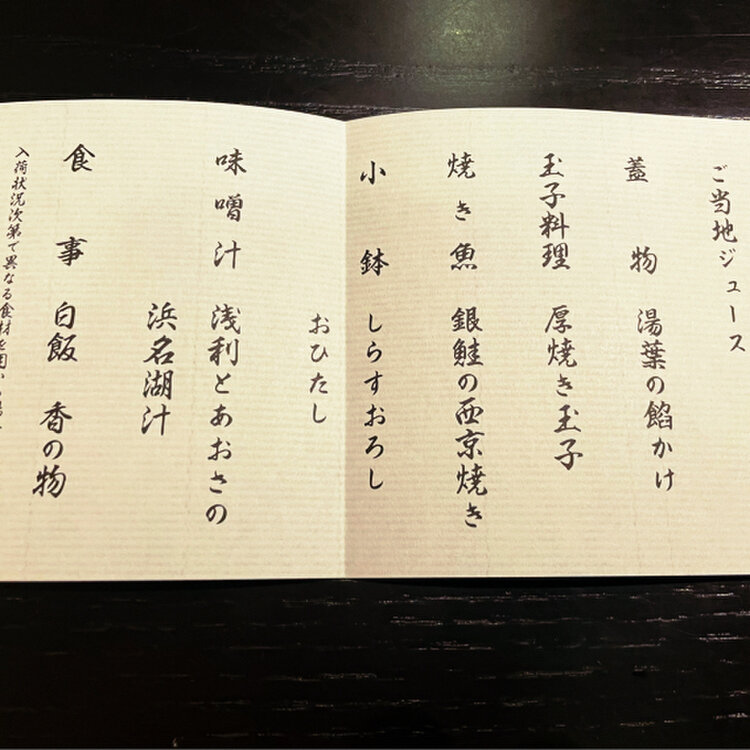 ご当地ジュース
蓋物 湯葉の餡かけ
玉子料理 厚焼き玉子
焼き魚 銀鮭の西京焼き
小鉢 しらすおろし
おひたし
味噌汁 浅利とあおさの
浜名湖汁
食事 白飯 香の物
入荷状況次第で異なる食材を用い